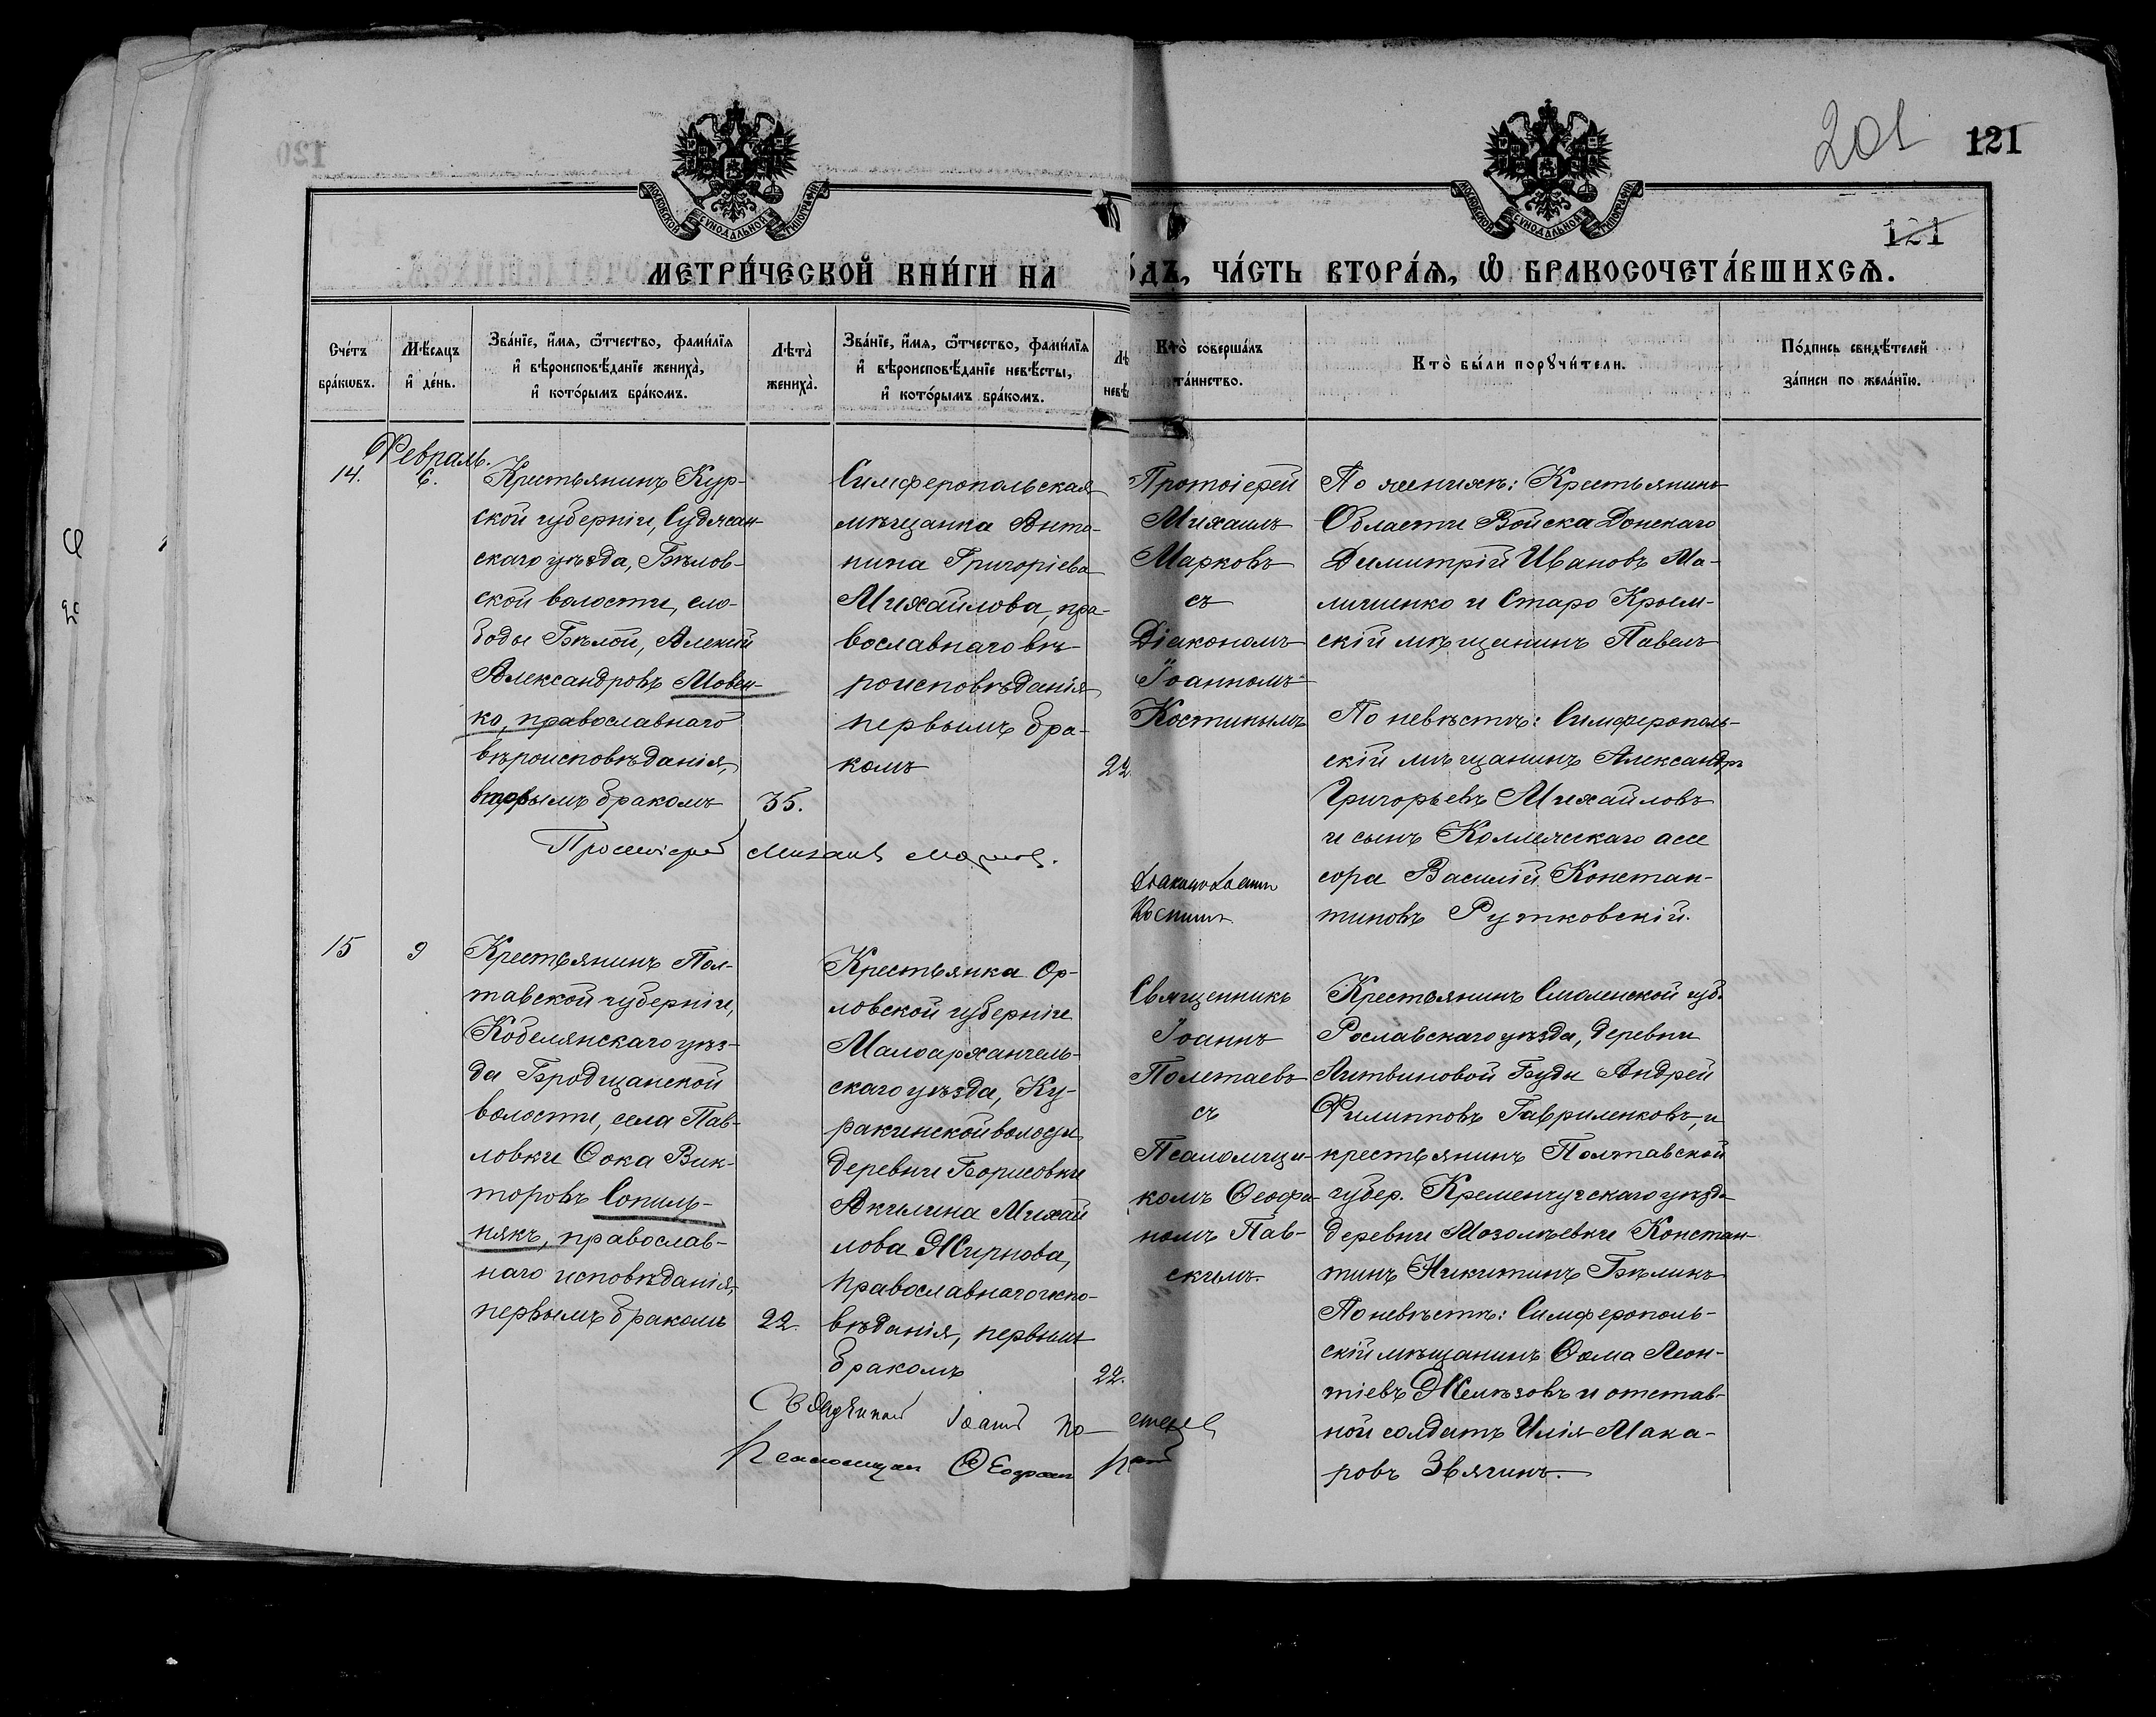 201 121
121
120
МОСКОВСКОЙ СѴНОДАЛЬНОЙ ТИПОГРАФІИ
МОСКОВСКОЙ СѴНОДАЛЬНОЙ ТИПОГРАФІИ
МЕТРИ́ЧЕСКОЙ КНИ́ГИ НА
О́ДЪ, ЧА́СТЬ ВТОРА́Ѧ, Ѡ҆ БРАКОСОЧЕТА́ВШИХСѦ.
Сче́тъ
бра́кѡвъ.
Мѣ́сѧцъ
и҆ де́нь.
Зва́нїе, и҆́мѧ, ѻ҆́тчество, фами́лїѧ
и҆ вѣроисповѣ́данїе жениха̀,
и҆ кото́рымъ бра́комъ.
Лѣта̀
жениха̀.
Зва́нїе, и҆́мѧ, ѻ҆́тчество, фами́лїѧ
и҆ вѣроисповѣ́данїе невѣ́сты,
и҆ кото́рымъ бра́комъ.
Лѣ
невѣ
Кто̀ соверша́лъ
та́инство.
Кто̀ бы́ли порꙋчи́тели.
По́дпись свидѣ́телей
за́писи по жела́нїю.
Февраль.
14.
6.
Крестьянинъ Кур-
ской губерніи, Суджан-
скаго уѣзда, Бѣлов-
ской волости, сло-
боды Бѣлой, Алексѣй
Александровъ Мовен-
ко, православнаго
вѣроисповѣданія,
вторымъ бракомъ
35.
Симферопольская
мѣщанка Анто-
нина Григоріева
Михайлова, пра-
вославнаго вѣ-
роисповѣданія
первымъ бра-
комъ
22
Протоіерей
Михаилъ
Марковъ
съ
Діакономъ
Іоанномъ
Костинымъ
По женихѣ: Крестьянинъ
Области Войска Донскаго
Димитрій Ивановъ Ма-
личенко и Старо Крым-
скій мѣщанинъ Павелъ
По невѣстѣ: Симферополь-
скій мѣщанинъ Александръ
Григорьевъ Михайловъ
и сынъ Коллежскаго ассе
сора Василій Констан-
тиновъ Рутковскій.
Протоіерей Михаилъ Марковъ.
Діаконъ Іоаннъ
Костинъ
15
9
Крестьянинъ Пол-
тавской губерніи,
Кобелянскаго уѣз-
да Бродщанской
волости, села Пав-
ловки Ѳока Вик-
торовъ Сопиль-
някъ, православ-
наго исповѣданія,
первымъ бракомъ
22.
Крестьянка Ор-
ловской губерніи
Малоархангель-
скаго уѣзда, Ку-
ракинской волости
деревни Борисовки
Акилина Михай
лова Жирнова,
православнаго испо-
вѣданія, первымъ
бракомъ
22.
Священникъ
Іоаннъ
Полетаевъ
съ
Псаломщи-
комъ Ѳеофа-
номъ Пав-
скимъ.
Крестьянинъ Смоленской губ.
Рославскаго уѣзда, деревни
Литвиновой Буды Андрей
Филипповъ Гавриленковъ, и
крестьянинъ Полтавской
губер. Кременчугскаго уѣзда
деревни Мозолѣевки Констан-
тинъ Никитинъ Бѣликъ
По невѣстѣ: Симферополь-
скій мѣщанинъ Ѳома Леон-
тіевъ Желѣзовъ и отстав-
ной солдатъ Илія Мака-
ровъ Звягинъ.
Священникъ Іоаннъ По
Псаломщикъ Ѳеофанъ